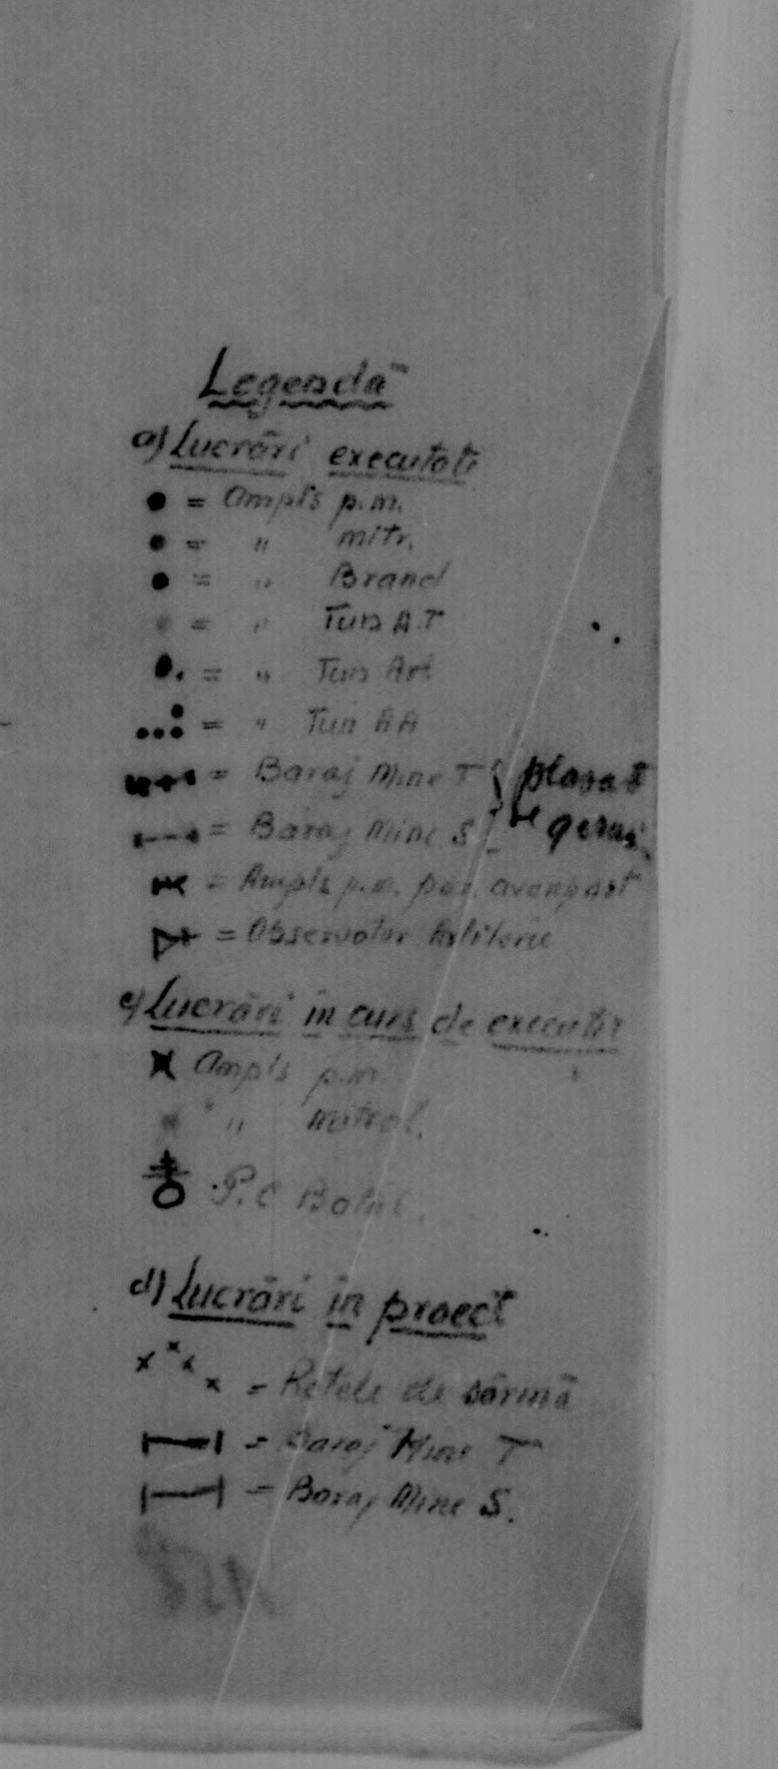 Legendă
a) Lucrări executate
= Ampls p.m.
= " mitr.
= " Brand
= " Tun A.T
= " Tun Art
= " Tun AA
= Baraj Mine T } plasat
= Baraj Mine S. de germ.
= Ampls p.m. par. avanpost
= Observator Artilerie
c) Lucrări în curs de execuție
Ampls p.m.
" mitral.
P.C Batal.
d) Lucrări în proect
= Rețele de sârmă
= Baraj Mine T
= Baraj Mine S.